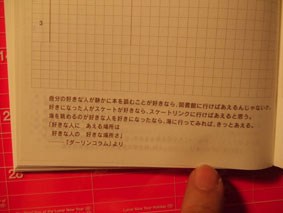 3
自分の好きな人が静かに本を読むことが好きなら、図書館に行けばあえるんじゃないか。
好きになった人がスケートが好きなら、スケートリンクに行けばあえると思う。
海を眺めるのが好きな人を好きになったなら、海に行ってみれば、きっとあえる。
「好きな人に あえる場所は
好きな人の 好きな場所さ」
――『ダーリンコラム』より
28